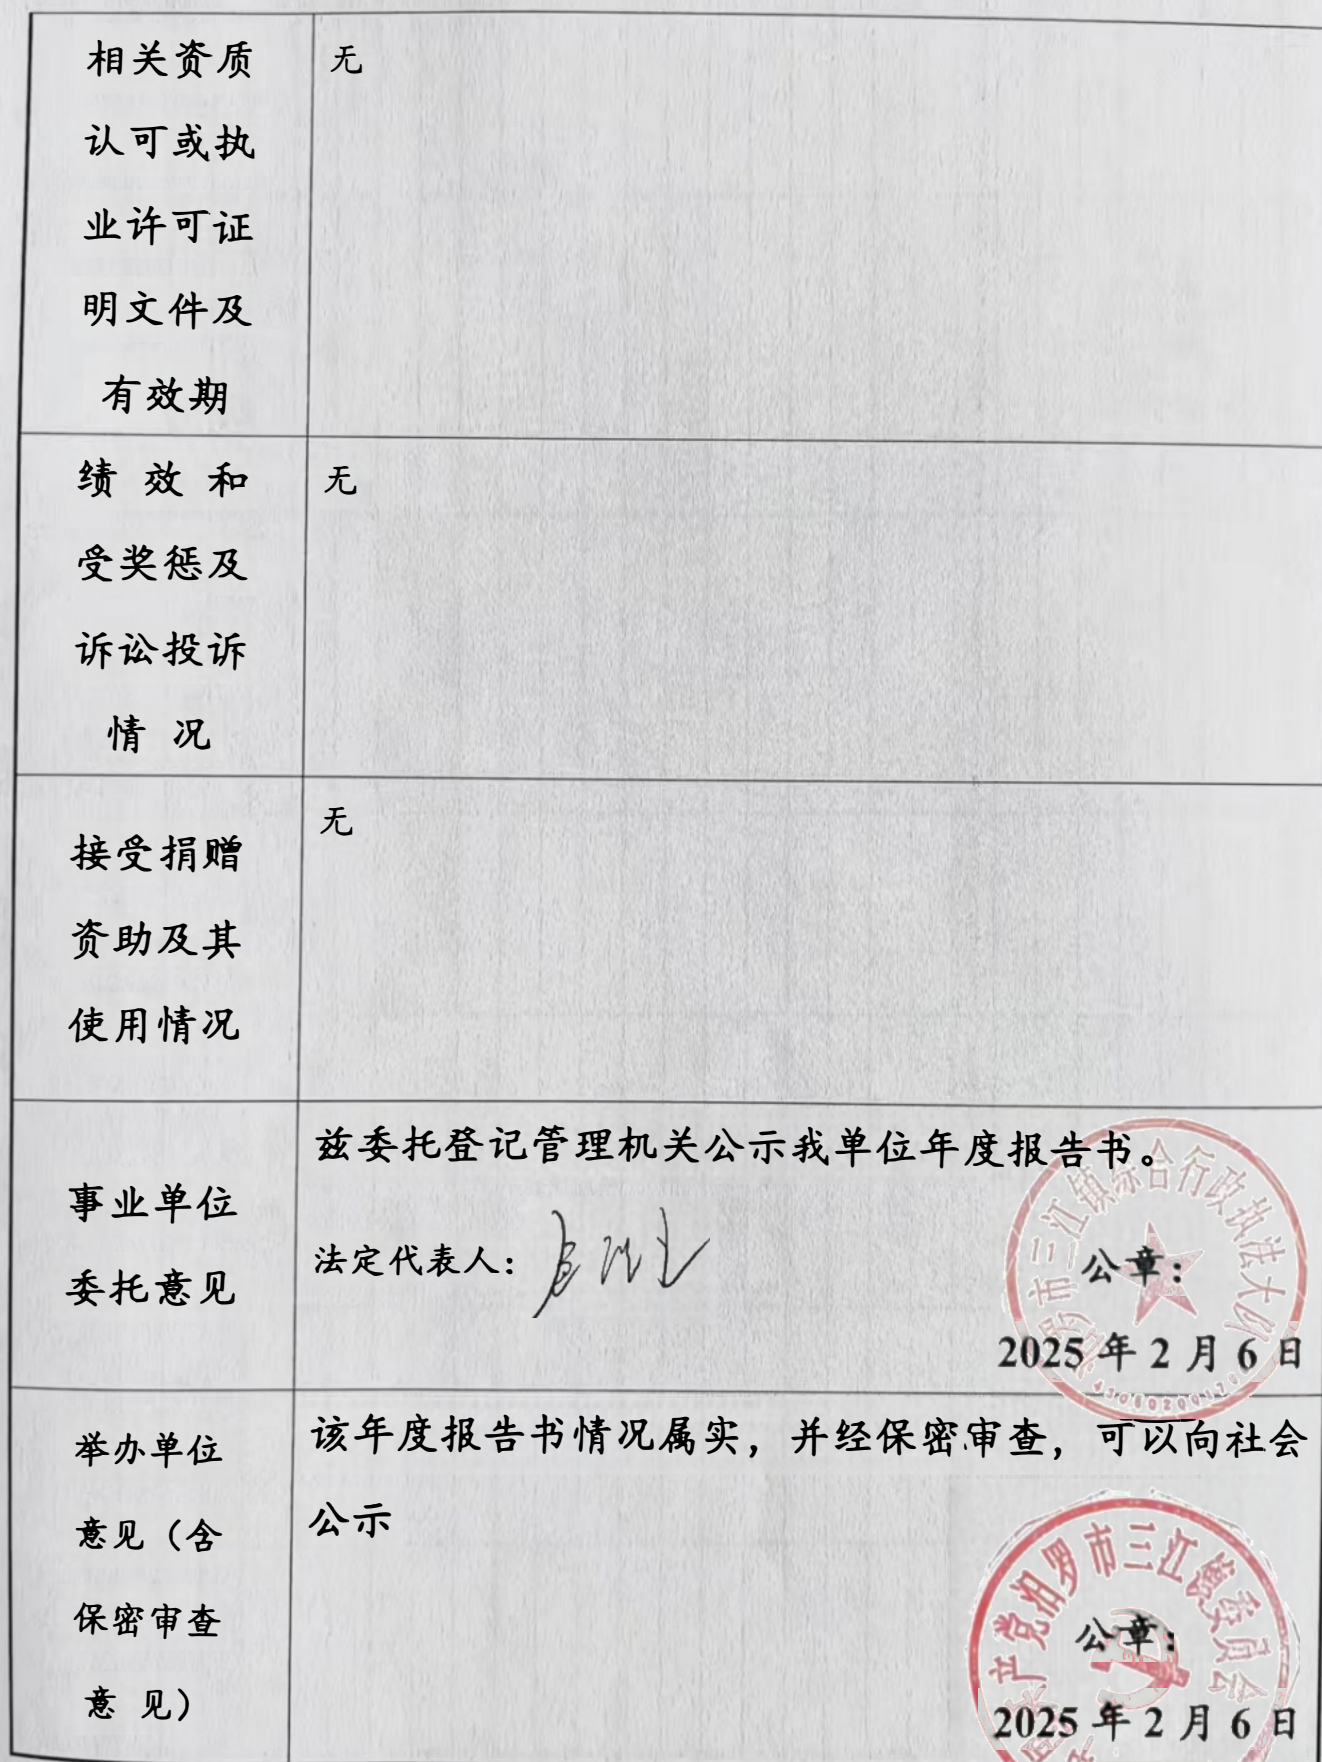 相关资质
认可或执
业许可证
明文件及
有效期
无
绩 效 和
受奖惩及
诉讼投诉
情 况
无
接受捐赠
资助及其
使用情况
无
事业单位
委托意见
兹委托登记管理机关公示我单位年度报告书。
法定代表人：
公章：
2025 年 2 月 6 日
罗市三江镇综合行政执法大队
举办单位
意见（含
保密审查
意 见）
该年度报告书情况属实，并经保密审查，可以向社会
公示
公章：
2025 年 2 月 6 日
产党汨罗市三江镇委员会